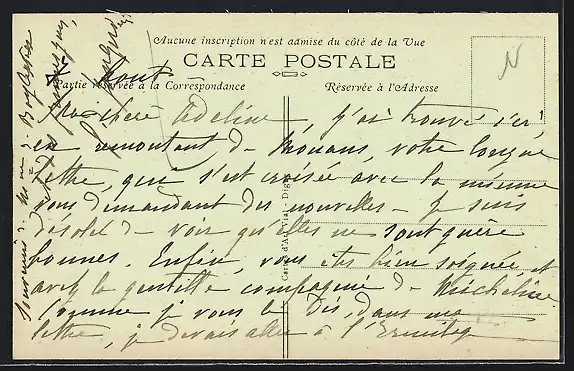 Aucune inscription n'est admise du côté de la Vue
CARTE POSTALE
Partie réservée à la Correspondance
Réservée à l'Adresse
Ma chère Adeline, j'ai trouvé ici
en remontant de Mouans, votre longue
lettre, qui s'est croisée avec la mienne
vous demandant des nouvelles - Je suis
désolée de voir qu'elles ne sont guère
bonnes. Enfin, vous êtes bien soignée et
avez la gentille compagnie de Micheline.
Comme je vous le dis, dans ma
lettre, je devais aller à l'Ermitage